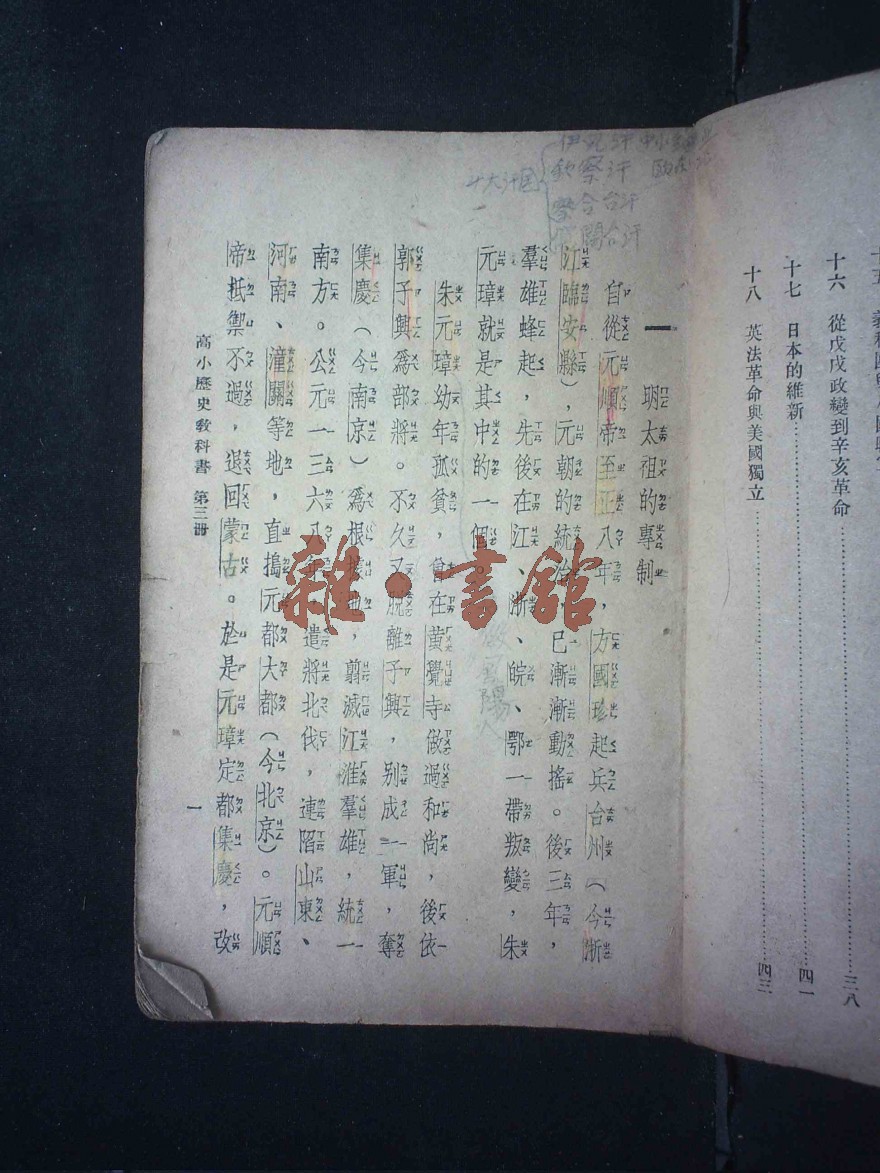 十六 從戊戌政變到辛亥革命………三八
十七 日本的維新………四一
十八 英法革命與美國獨立………四三
一 明太祖的專制
自從元順帝至正八年，方國珍起兵台州（今浙
江臨安縣），元朝的統治，已漸漸動搖。後三年，
羣雄蜂起，先後在江、浙、皖、鄂一帶叛變，朱
元璋就是其中的一個。
朱元璋幼年孤貧，曾在黃覺寺做過和尚，後依
郭子興爲部將。不久又脫離子興，別成一軍，奪
集慶（今南京）爲根據地，翦滅江淮羣雄，統一
南方。公元一三六八年，遣將北伐，連陷山東、
河南、潼關等地，直搗元都大都（今北京）。元順
帝抵禦不過，退回蒙古。於是元璋定都集慶，改
高小歷史敎科書 第三冊
一
雜·書館